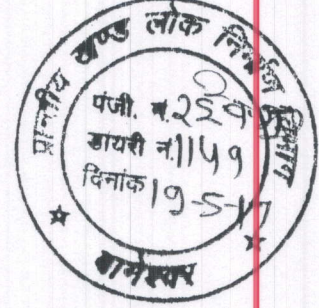 प्रान्तीय खण्ड लोक निर्माण विभाग
पंजी. न.
डायरी नं.
दिनांक 19-5-17
बागेश्वर